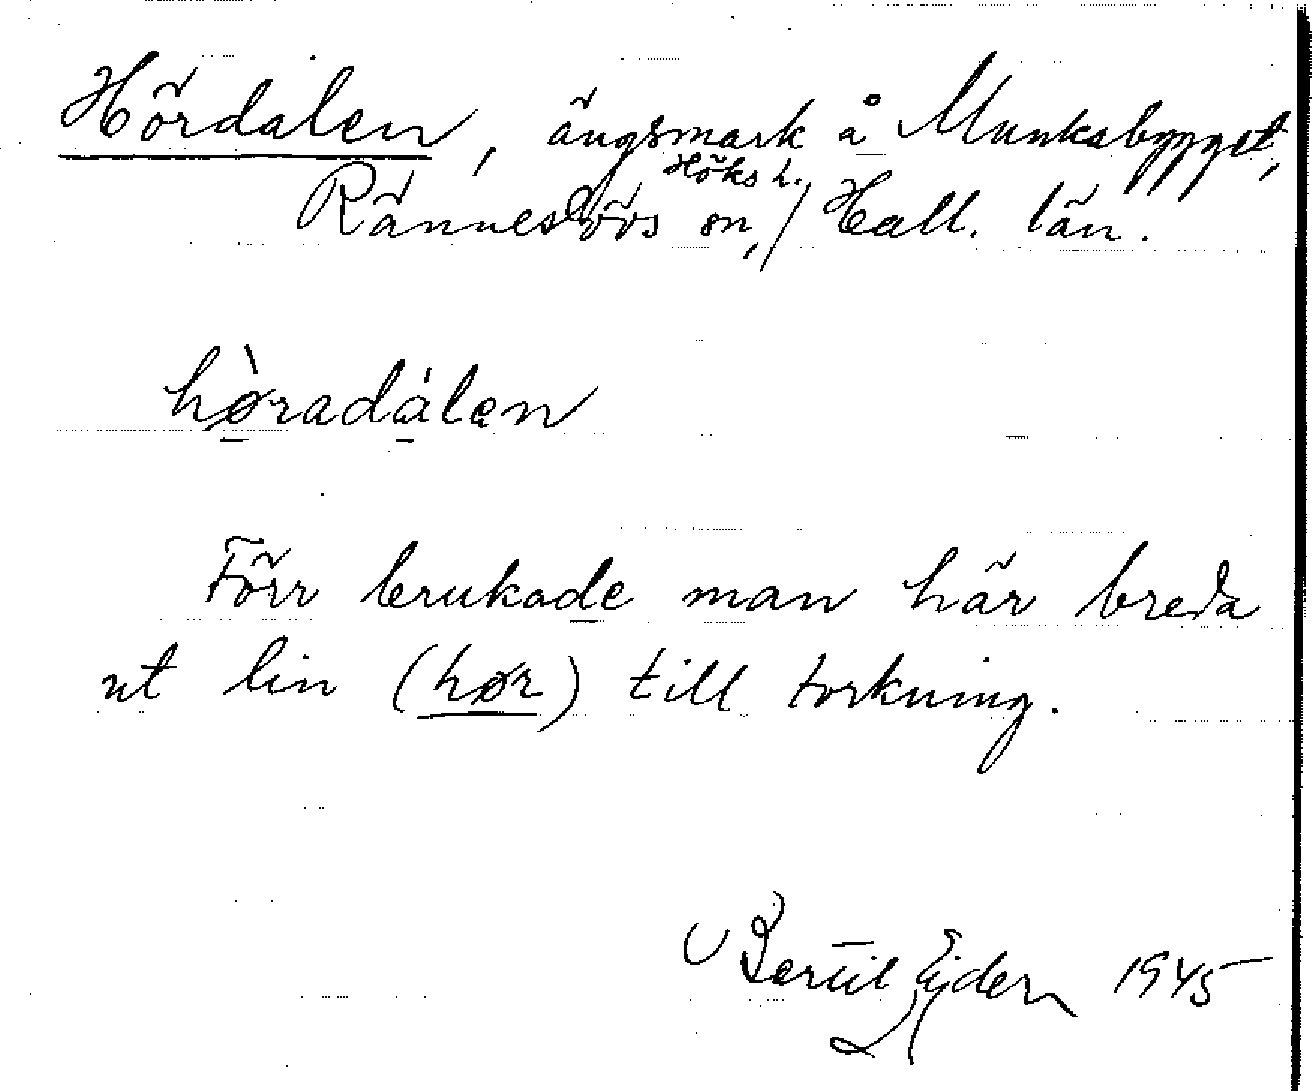 Hördalen, ängsmark å Munkabygget,
Ränneslövs sn, Höks h. Hall. län.
hø̀radálen
Förr brukade man här breda
ut lin (hør) till torkning.
Bertil Ejder 1945